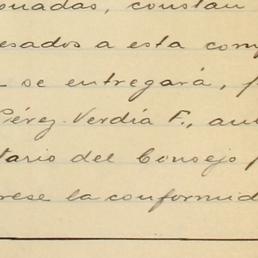 onadas, constan
esados a esta com
se entregará, p
Pérez Verdía F., au
tario del Consejo p
rese la conformid